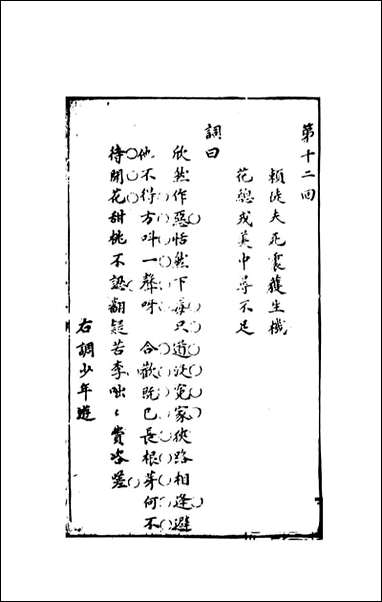 第十二回
賴從夫死裏獲生機
花總戎美中尋不足
詞曰
欣然作惡恬然下毒只道泛冤家狹路相逢避
他不得方呌一聲呀 合歡既已長根芽何不
待開花甜桃不認翻疑苦李咄咄費咨嗟
右調少年遊